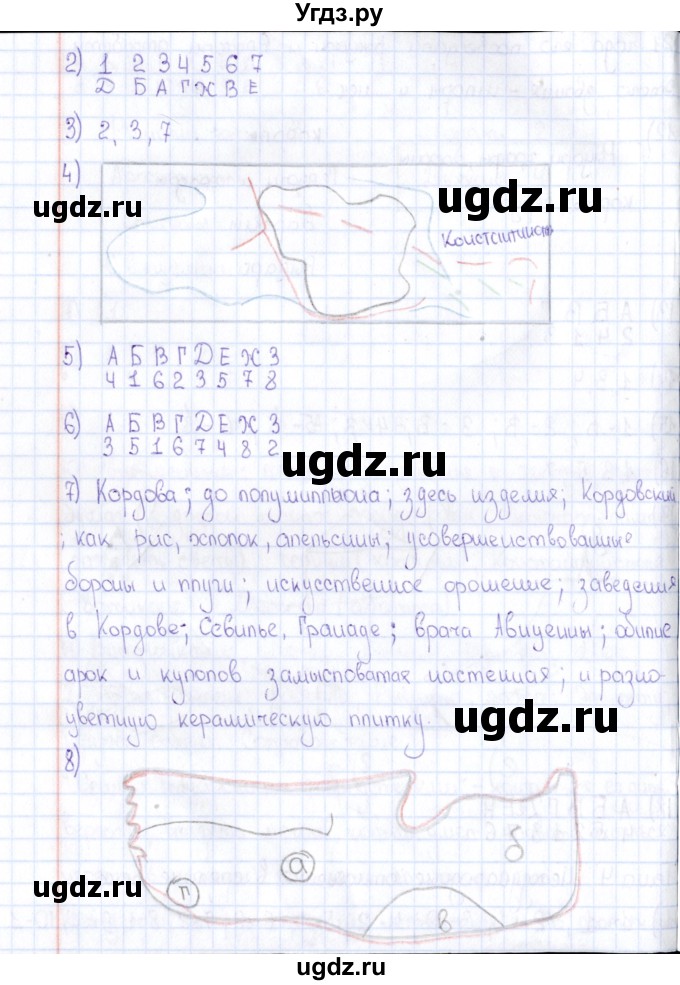 Угдз.ру
2) 1 2 3 4 5 6 7
Д Б А Г Ж В Е
3) 2, 3, 7
4)
ugdz.ru
ugdz.ru
5) А Б В Г Д Е Ж З
4 1 6 2 3 5 7 8
6) А Б В Г Д Е Ж З
3 5 1 6 7 4 8 2
ugdz.ru
7) Кордова; до полумиллиона; здесь изделия; Кордовский
; как рис, хлопок, апельсины; усовершенствованные
бороны и плуги; искусственное орошение; заведения
в Кордове; Севилье, Гранаде; врача Авиценны; обилие
арок и куполов замысловатая настенная; и разно-
цветную керамическую плитку.
ugdz.ru
8)
а
б
г
в
ugdz.ru
ugdz.ru